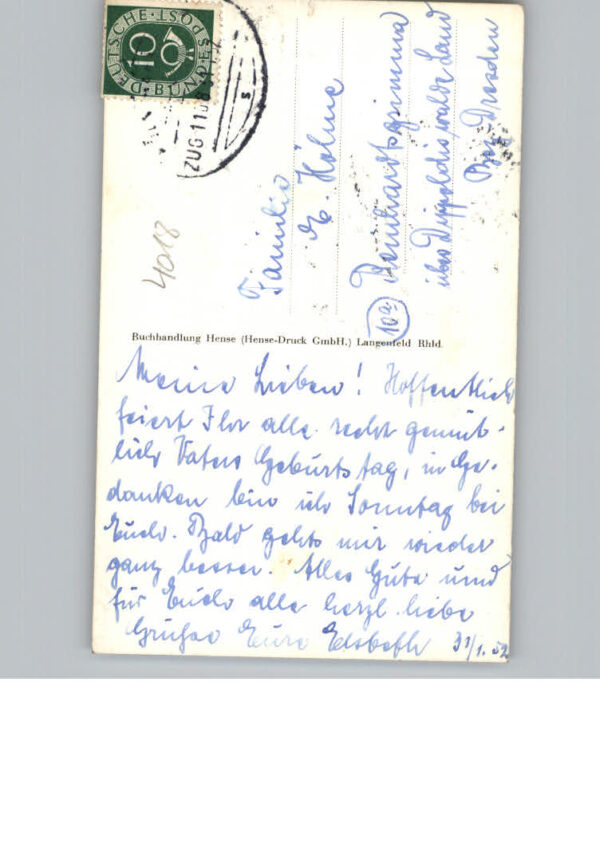 DEUTSCHE·BUNDESPOST
10
ZUG 11
s
4018
Familie
E. Höhne
(10a) Reinhardtsgrimma
über Dippoldiswalde Land
Bez. Dresden
Buchhandlung Hense (Hense-Druck GmbH.) Langenfeld Rhld.
Meine Lieben! Hoffentlich
feiert Ihr alle recht gemüt-
lich Vaters Geburtstag, in Ge-
danken bin ich Sonntag bei
Euch. Bald gehts mir wieder
ganz besser. Alles Gute und
für Euch alle herzl. liebe
Grüße Eure Elsbeth 31/1. 52